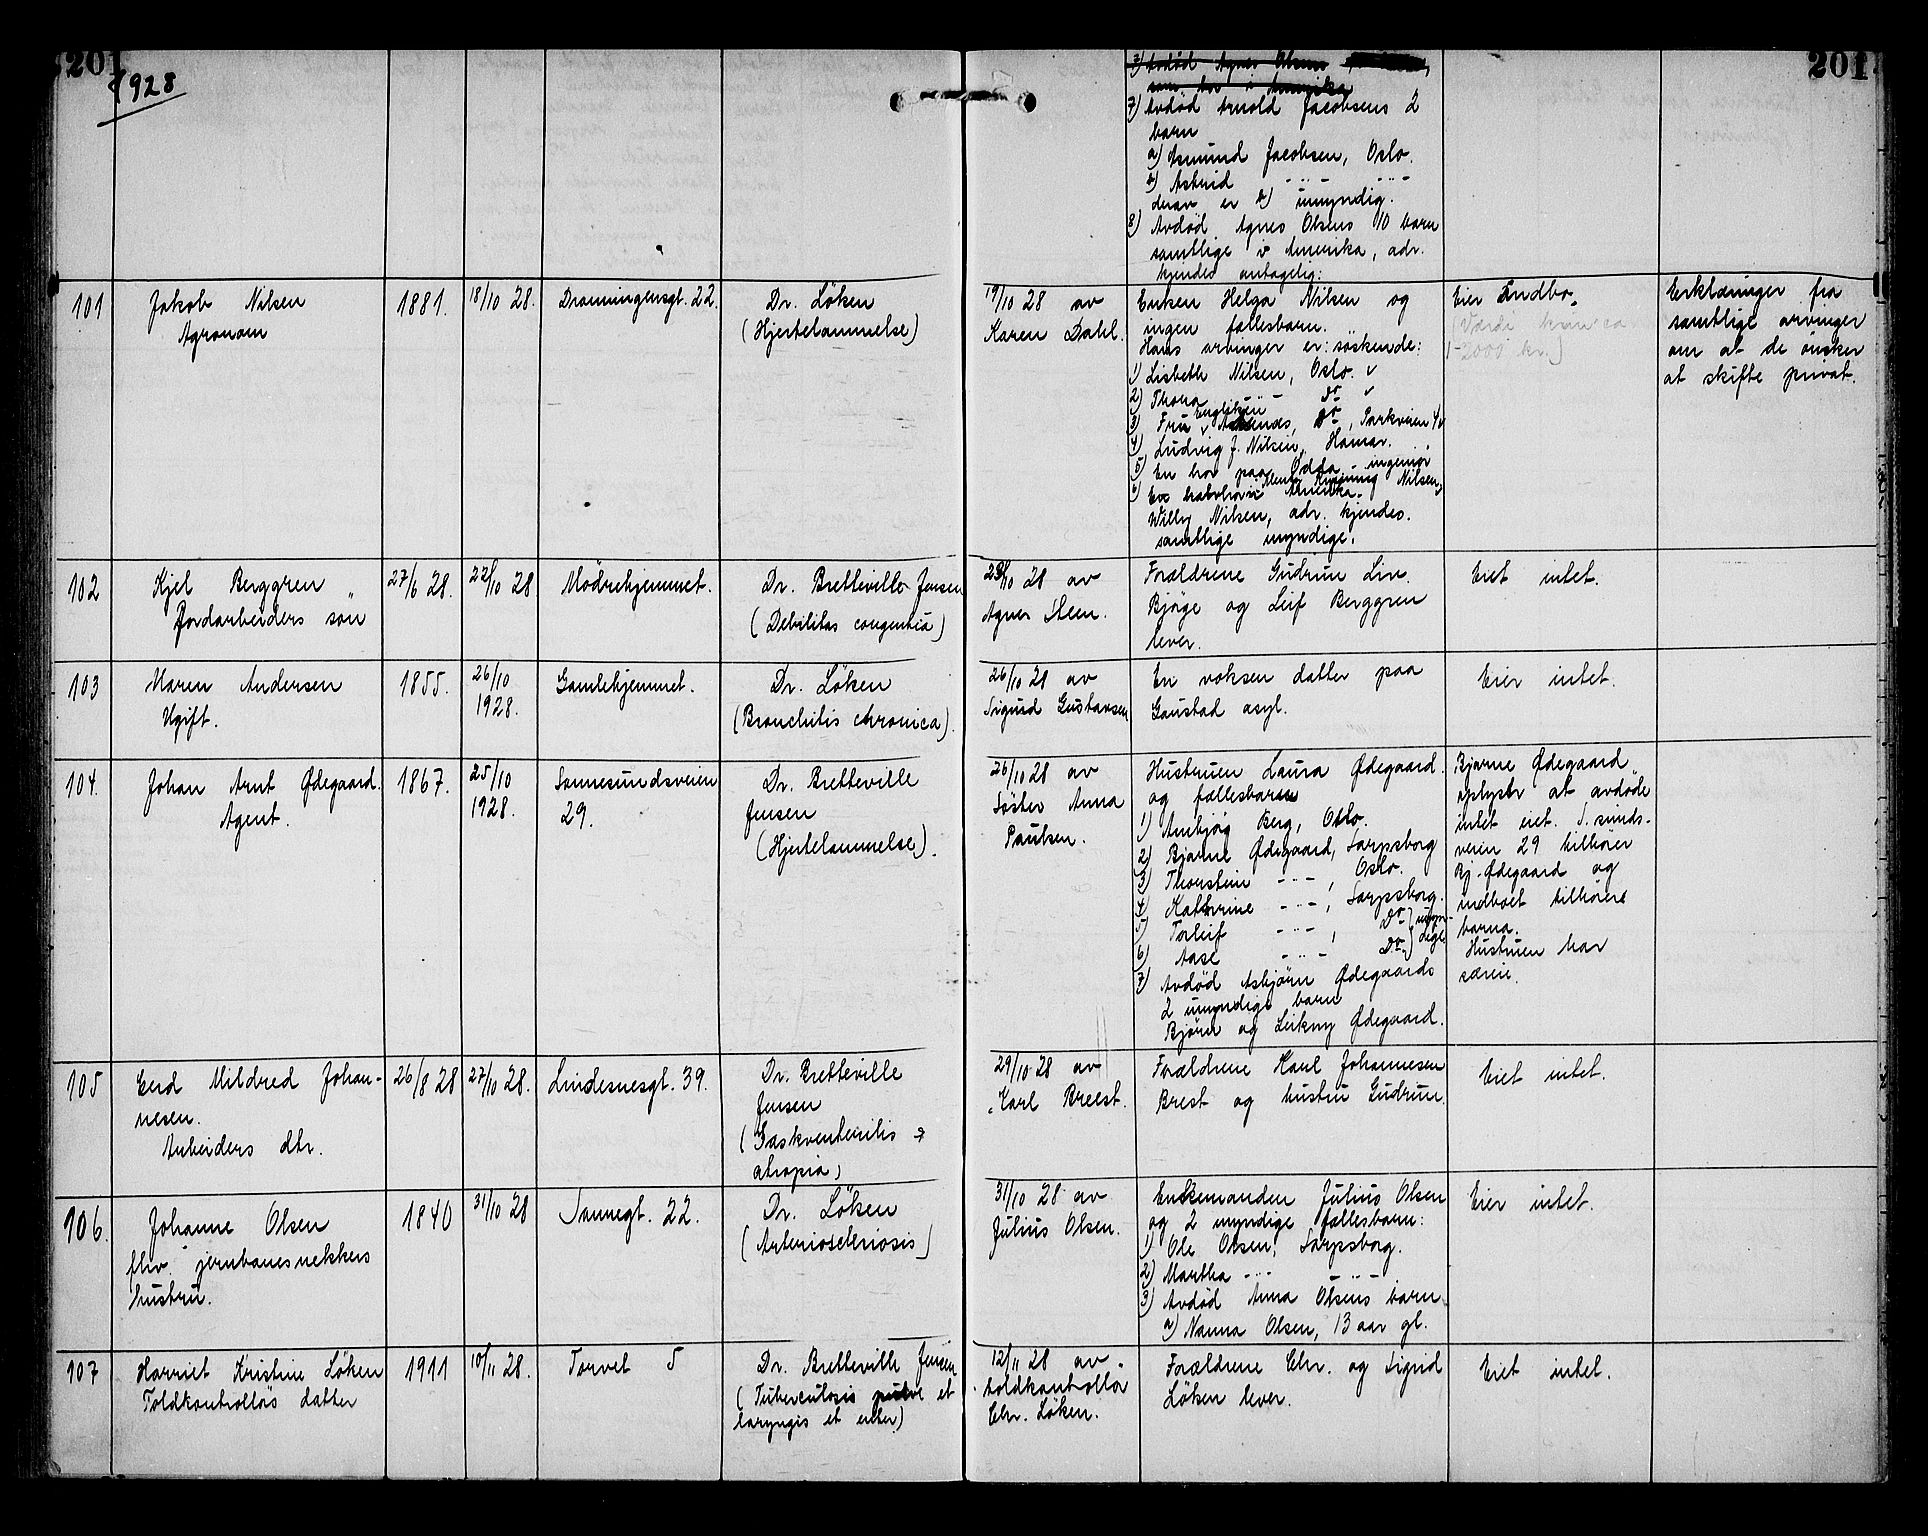 201
201
1928
7) Avdød Arnold Jacobsens 2
barn
a) Asmund Jacobsen, Oslo.
b) Astrid -"- -"-
derav er b) umyndig.
8) Avdød Agnes Olsens 10 barn
samtlige i Amerika, adr.
kjendes antagelig:
101
Jakob Nilsen
Agronom
1881.
18/10 28.
Dronningensgt. 22.
Dr. Löken
(Hjertelammelse)
19/10 28 av
Karen Dahl.
Enken Helga Nilsen og
ingen fællesbarn.
Hans arvinger er: söskende:
1) Lisbeth Nilsen, Oslo. v
2) Thora -"- Do v
3) Fru Amunds, Do, Parkveien 4
4) Ludvig J. Nilsen, Hamar.
5) En bor paa Odda, ingeniör
Nilsen,
6) Amerika.
Willy Nilsen, adr. kjendes.
samtlige myndige.
Eier Indbo.
(Værdi kun ca
1-2000 kr.)
Erklæringer fra
samtlige arvinger
om at de önsker
at skifte privat.
102
Kjel Berggren
Jordarbeiders sön
27/6 28.
22/10 28
Mödrehjemmet.
Dr. Bretteville Jensen
(Debilitas congenita)
23/10 28 av
Agnes Steen.
Forældrene Gudrun Liv.
Bjöge og Leif Berggren
lever.
Eiet intet.
103
Maren Andersen
Ugift.
1855.
26/10
1928.
Gamlehjemmet.
Dr. Löken
(Bronchitis chronica).
26/10 28 av
Sigurd Gustavsen
En voksen datter paa
Gaustad asyl.
Eier intet.
104.
Johan Arnt Ødegaard.
Agent.
1867.
25/10
1928.
Sannesundsveien
29.
Dr. Bretteville
Jensen
(Hjertelammelse).
26/10 28 av
Söster Anna
Paulsen.
Hustruen Laura Ødegaard.
og fællesbarn
1) Anbjög Berg, Oslo.
2) Bjarne Ødegaard, Sarpsborg
3) Thorstein -"-, Oslo.
4) Kathrine -"-, Sarpsborg.
5) Torleif -"-, Do } umyn-
6) Aase -"- Do } dige
7) Avdød Asbjörn Ødegaards
2 umyndige barn
Björn og Leikny Ødegaard.
Bjarne Ødegaard
oplyser at avdøde
intet eiet. S.sunds-
veien 29 tilhörer
Bj. Ødegaard og
indboet tilhörer
barna.
Hustruen har
særeie.
105
Gerd Mildred Johan-
nesen.
Arbeiders dtr.
26/8 28
27/10 28.
Lindesnesgt. 39.
Dr. Bretteville
Jensen
(Gaskventeritis
atropia)
29/10 28 av
Carl Breest.
Forældrene Karl Johannesen
Brest og hustru Gudrun.
Eiet intet.
106.
Johanne Olsen
fhv. jernbanesnekkers
hustru.
1840
31/10 28
Sannegt. 22.
Dr. Löken
(Arteriosclerosis)
31/10 28 av
Julius Olsen.
Enkemanden Julius Olsen
og 2 myndige fællesbarn:
1) Ole Olsen, Sarpsborg.
2) Martha -"- -"-
3) Avdød Anna Olsens barn
a) Nanna Olsen, 13 aar gl.
Eier intet.
107
Harriet Kristine Löken
Toldkontrollörs datter
1911
10/11 28.
Torvet 5
Dr. Bretteville Jensen
(Tuberculosis pulm et
laryngis et enter)
12/11 28 av
toldkontrollör
Chr. Löken.
Forældrene Chr. og Sigrid
Löken lever.
Eiet intet.